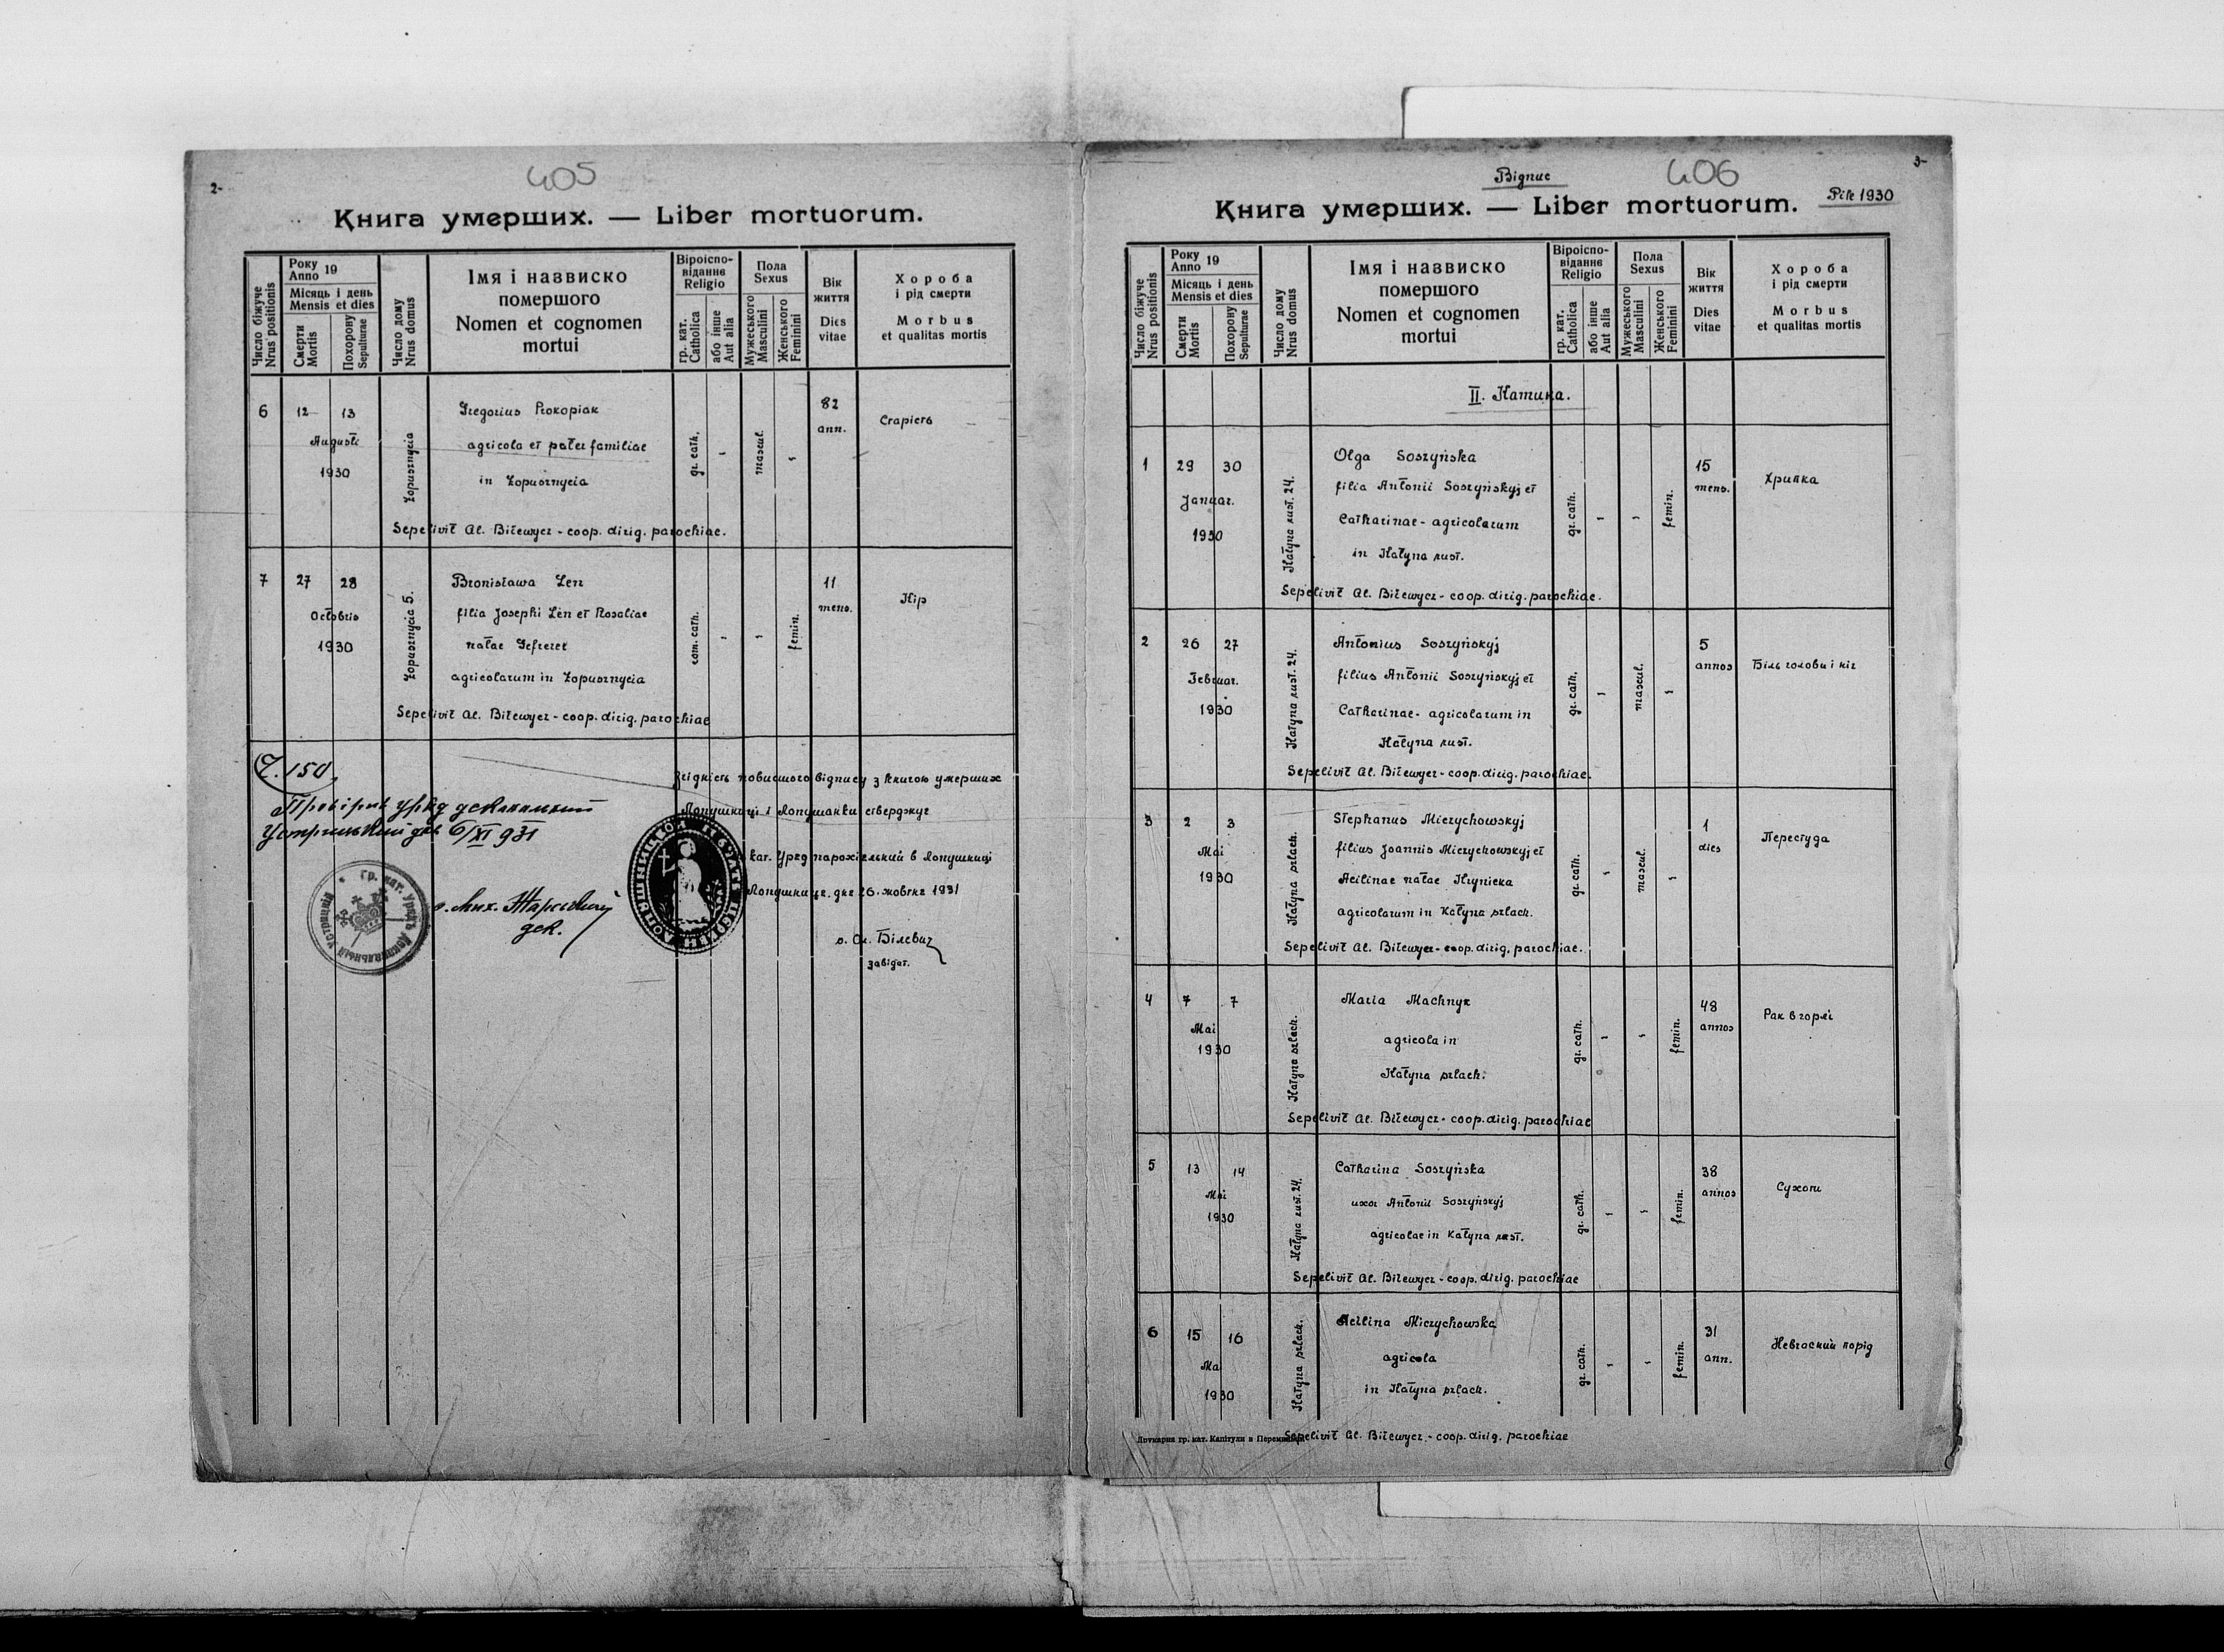 2-
405
Книга умерших. — Liber mortuorum.
Число біжуче
Nrus positionis
Року
Anno 19
Місяць і день
Mensis et dies
Смерти
Mortis
Похорону
Sepulturae
Число дому
Nrus domus
Імя і назвиско
помершого
Nomen et cognomen
mortui
Віроіспо-
віданнє
Religio
гр. кат.
Catholica
або інше
Aut alia
Пола
Sexus
Мужеського
Masculini
Женського
Feminini
Вік
життя
Dies
vitae
Хороба
і рід смерти
Morbus
et qualitas mortis
6
12 13
Augusti
1930
Łopusznycia
Gregorius Prokopiak
agricola et pater familiae
in Łopusznycia
gr. cath.
mascul.
82
ann.
Старість
Sepelivit Al. Biłewycz - coop. dirig. parochiae.
7
27 28
Octobris
1930
Łopusznycia 5.
Bronisława Len
filia Josephi Len et Rosaliae
natae Gefreter
agricolarum in Łopusznycia
rom. cath.
femin.
11
mens.
Кір
Sepelivit Al. Biłewycz - coop. dirig. parochiae
Ч. 150
Провірив уряд деканальний
Устрицький дня 6/XI 931
о. Мих.
дек.
Згідність повисшого відпису з книгою умерших
Лопушниці і Лопушанки стверджує
кат. Уряд парохіяльний в Лопушниці
Лопушниця, дня 26. жовтня 1931
о. Ол. Білевич
завідат.
3-
Відпис
406
Рік 1930
Книга умерших. — Liber mortuorum.
Число біжуче
Nrus positionis
Року
Anno 19
Місяць і день
Mensis et dies
Смерти
Mortis
Похорону
Sepulturae
Число дому
Nrus domus
Імя і назвиско
помершого
Nomen et cognomen
mortui
Віроіспо-
віданнє
Religio
гр. кат.
Catholica
або інше
Aut alia
Пола
Sexus
Мужеського
Masculini
Женського
Feminini
Вік
життя
Dies
vitae
Хороба
і рід смерти
Morbus
et qualitas mortis
II. Катина.
1
29 30
Januar.
1930
Katyna rust. 24.
Olga Soszyńska
filia Antonii Soszyńskyj et
Catharinae - agricolarum
in Katyna rust.
gr. cath.
femin.
15
mens.
Хрипка
Sepelivit Al. Biłewycz - coop. dirig. parochiae.
2
26 27
Februar.
1930
Katyna rust. 24.
Antonius Soszyńskyj
filius Antonii Soszyńskyj et
Catharinae - agricolarum in
Katyna rust.
gr. cath.
mascul.
5
annos
Біль голови і ніг
Sepelivit Al. Biłewycz - coop. dirig. parochiae.
3
2 3
Mai
1930
Katyna szlach.
Stephanus Mierzychowskyj
filius Joannis Mierzychowskyj et
Acilinae natae Hrynicka
agricolarum in Katyna szlach.
gr. cath.
mascul.
1
dies
Перестуда
Sepelivit Al. Biłewycz - coop. dirig. parochiae.
4
7 7
Mai
1930
Katyna szlach.
Maria Machnyk
agricola in
Katyna szlach.
gr. cath.
femin.
48
annos
Рак в горлі
Sepelivit Al. Biłewycz - coop. dirig. parochiae
5
13 14
Mai
1930
Katyna rust. 24.
Catharina Soszyńska
uxor Antonii Soszyńskyj
agricolae in Katyna rust.
gr. cath.
femin.
38
annos
Сухоти
Sepelivit Al. Biłewycz - coop. dirig. parochiae
6
15 16
Mai
1930
Katyna szlach.
Acilina Mierzychowska
agricola
in Katyna szlach.
gr. cath.
femin.
31
ann.
Невчасний порід
Друкарня гр. кат. Капітули в
Sepelivit Al. Biłewycz - coop. dirig. parochiae